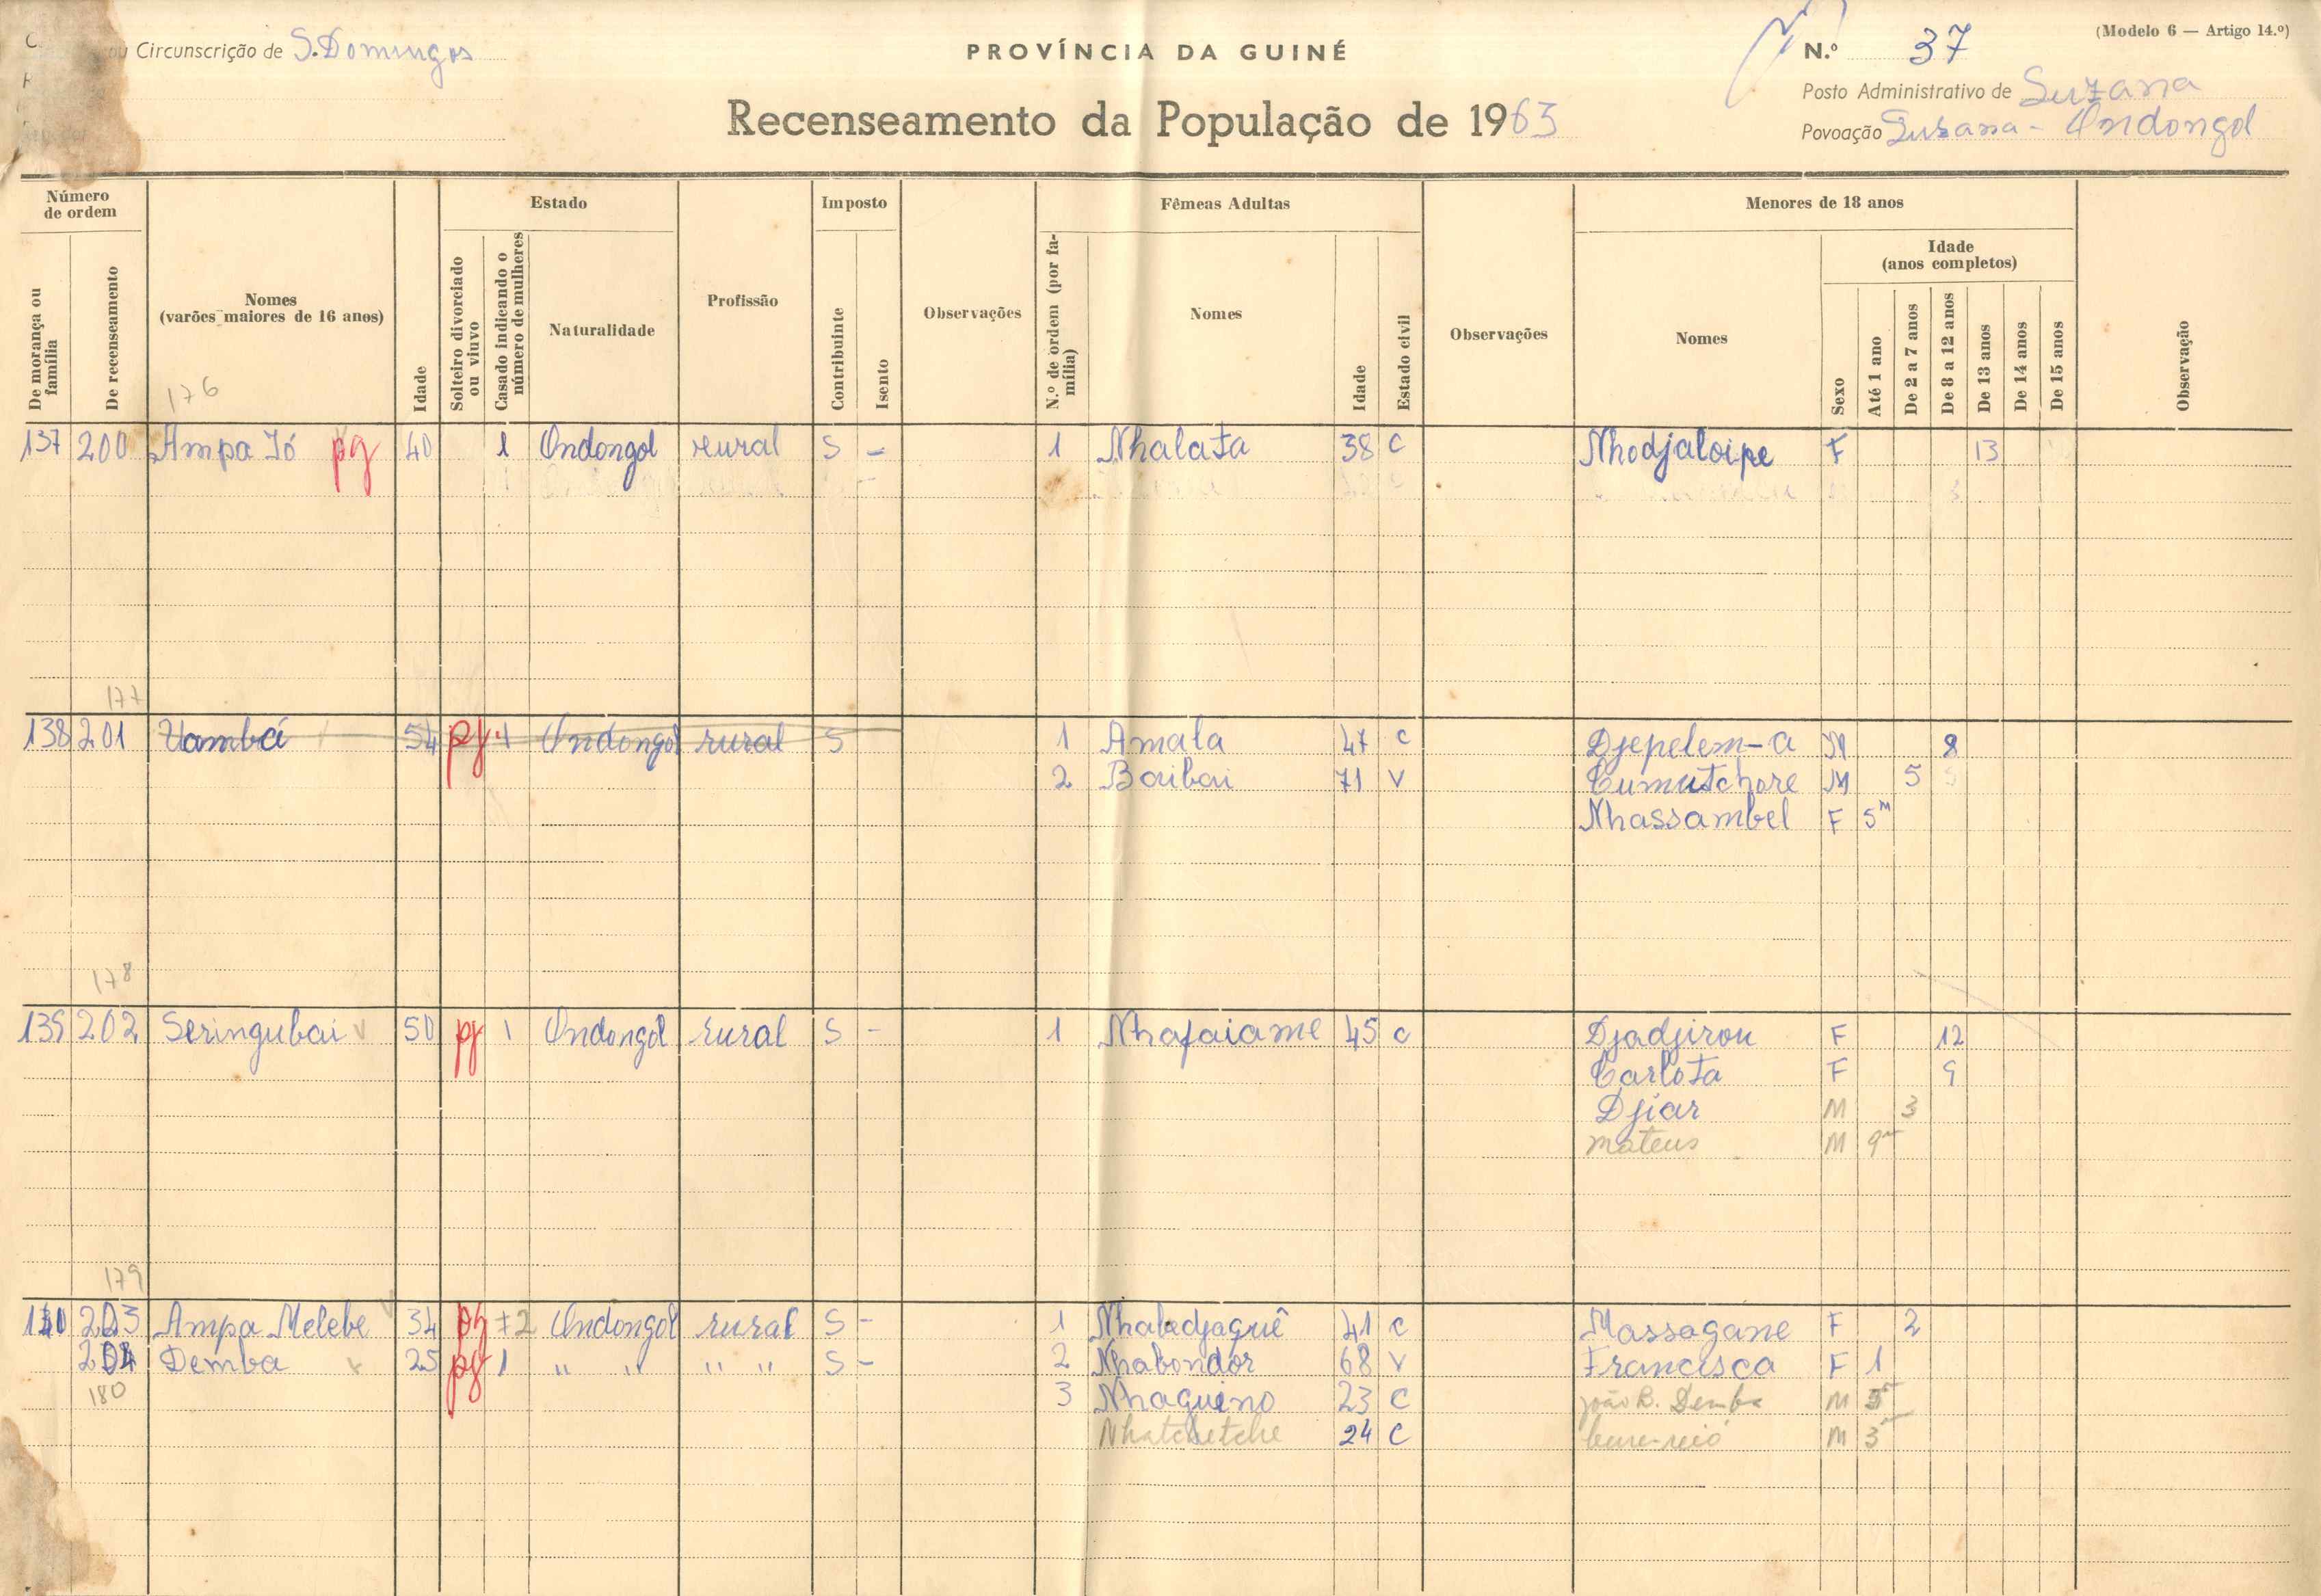 Circunscrição de S. Domingos
PROVÍNCIA DA GUINÉ
Recenseamento da População de 1963
(Modelo 6 — Artigo 14.º)
N.º 37
Posto Administrativo de Suzana
Povoação Suzana - Ondongol
Número de ordem
De morança ou família
De recenseamento
Nomes
(varões maiores de 16 anos)
176
Idade
Estado
Solteiro divorciado ou viuvo
Casado indicando o número de mulheres
Naturalidade
Profissão
Imposto
Contribuinte
Isento
Observações
Fêmeas Adultas
N.º de ordem (por família)
Nomes
Idade
Estado civil
Observações
Menores de 18 anos
Nomes
Sexo
Idade
(anos completos)
Até 1 ano
De 2 a 7 anos
De 8 a 12 anos
De 13 anos
De 14 anos
De 15 anos
Observação
137 200 Ampa Jó pg 40 1 Ondongol rural S - 1 Nhalata 38 C Nhodjaloipe F 13
177
138 201 Uambá 54 pg 1 Ondongol rural S 1 Amala 47 C Djepelem-a M 8
2 Baibai 71 V Cumutchore M 5
Nhassambel F 5m
178
139 202 Seringubai 50 pg 1 Ondongol rural S - 1 Nhafaiame 45 C Djadjirou F 12
Carlota F 9
Djiar M 3
Mateus M 9m
179
140 203 Ampa Melebe 34 pg 2 Ondongol rural S - 1 Nhabedjaguê 41 C Massagane F 2
204 Demba 25 pg 1 " " " " S - 2 Nhabondor 68 V Francisca F 1
180
3 Nhagueno 23 C João B. Demba M
Nhatchetche 24 C M 3m